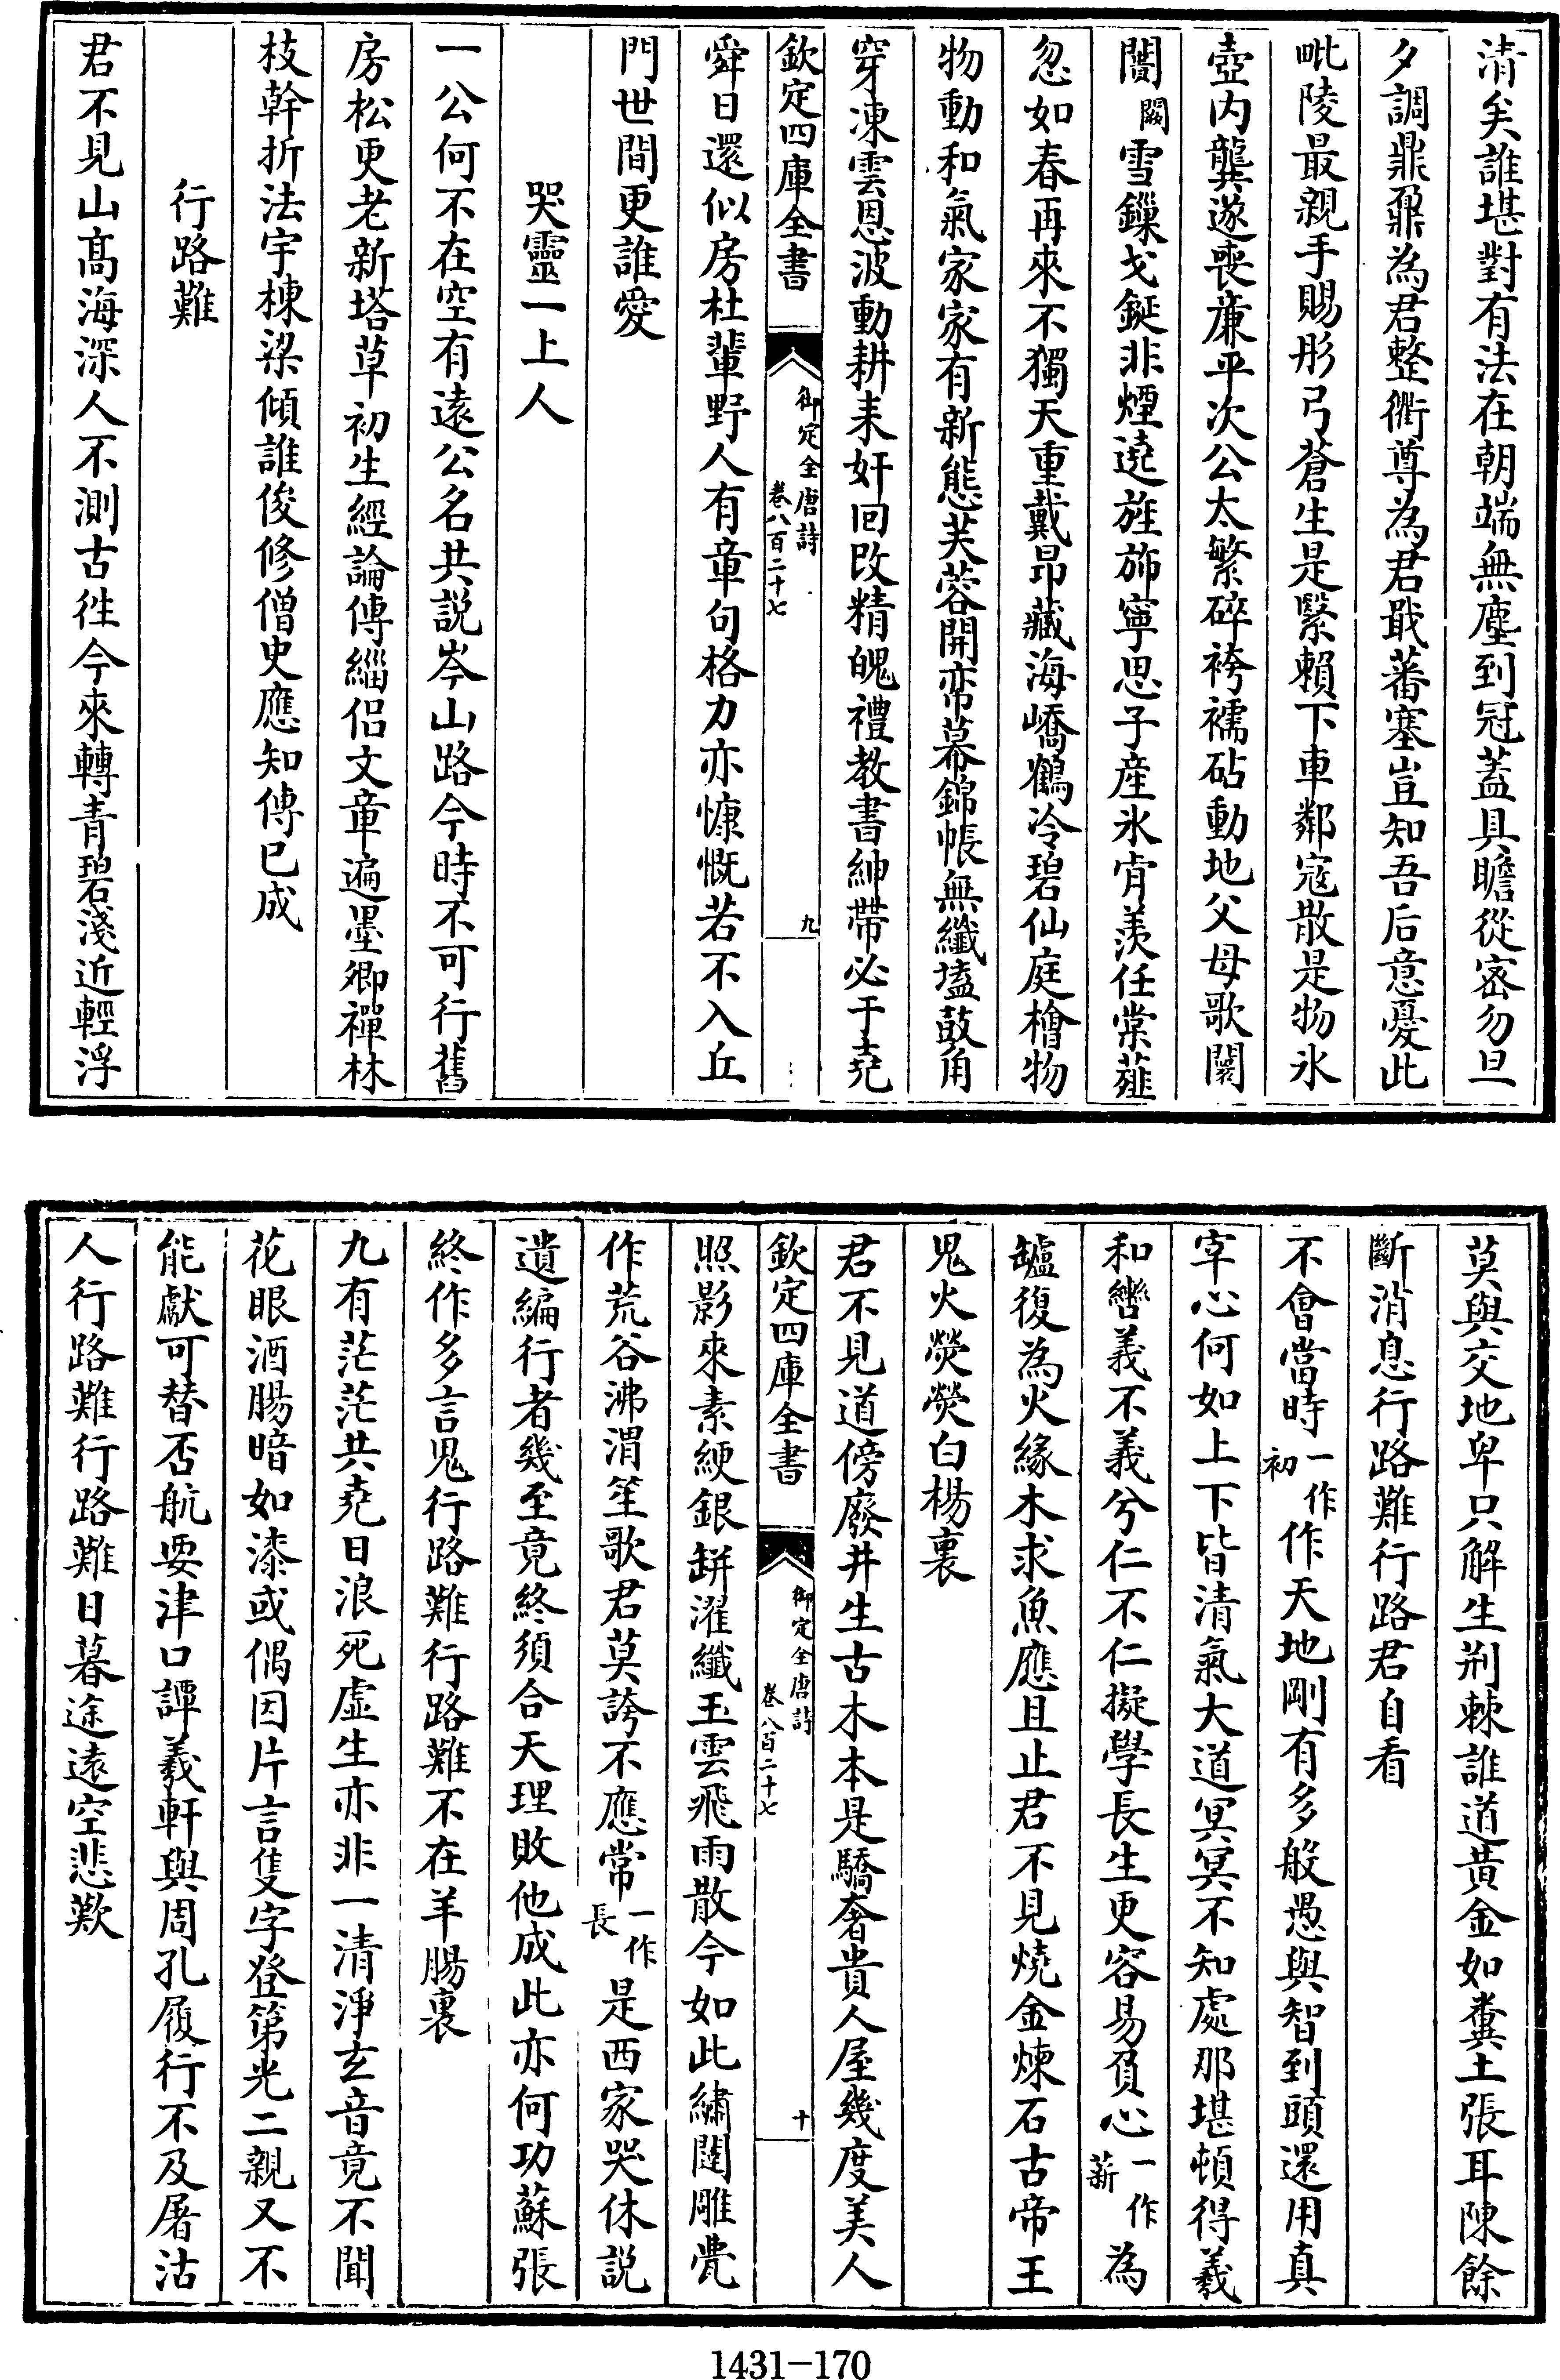 清矣誰堪對有法在朝端無塵到冠蓋具瞻從密勿旦
夕調鼎鼐為君整衢尊為君戢蕃塞豈知吾后意憂此
毗陵最親手賜彤弓蒼生是繄賴下車鄰寇散是物氷
壺内龔遂喪亷平次公太繁碎袴襦砧動地父母歌闤
闠闕雪鏁戈鋋非煙遶旌斾寧思子産氷肯羨任棠薤
忽如春再來不獨天重戴昻藏海嶠鶴冷碧仙庭檜物
物動和氣家家有新態芙蓉開帟幕錦帳無纖壒鼓角
穿凍雲恩波動耕耒奸回改精魄禮教書紳帶必于堯
欽定四庫全書
御定全唐詩
卷八百二十七
九
舜日還似房杜輩野人有章句格力亦慷慨若不入丘
門世間更誰愛
哭靈一上人
一公何不在空有遠公名共説岑山路今時不可行舊
房松更老新塔草初生經論傳緇侣文章遍墨卿禪林
枝幹折法宇棟梁傾誰俊修僧史應知傳已成
行路難
君不見山髙海深人不測古徃今來轉青碧淺近輕浮
莫與交地卑只解生荆棘誰道黄金如糞土張耳陳餘
斷消息行路難行路君自看
不會當時一作初作天地剛有多般愚與智到頭還用真
宰心何如上下皆清氣大道冥冥不知處那堪頓得羲
和轡義不義兮仁不仁擬學長生更容易負心一作薪為
罏復為火緣木求魚應且止君不見燒金煉石古帝王
鬼火熒熒白楊裏
君不見道傍廢井生古木本是驕奢貴人屋幾度美人
欽定四庫全書
御定全唐詩
卷八百二十七
十
照影來素綆銀缾濯纖玉雲飛雨散今如此繡闥雕甍
作荒谷沸渭笙歌君莫誇不應常一作長是西家哭休説
遺編行者幾至竟終須合天理敗他成此亦何功蘇張
終作多言鬼行路難行路難不在羊腸裏
九有茫茫共堯日浪死虚生亦非一清淨玄音竟不聞
花眼酒腸暗如漆或偶因片言隻字登第光二親又不
能獻可替否航要津口譚羲軒與周孔履行不及屠沽
人行路難行路難日暮途遠空悲歎
1431-170